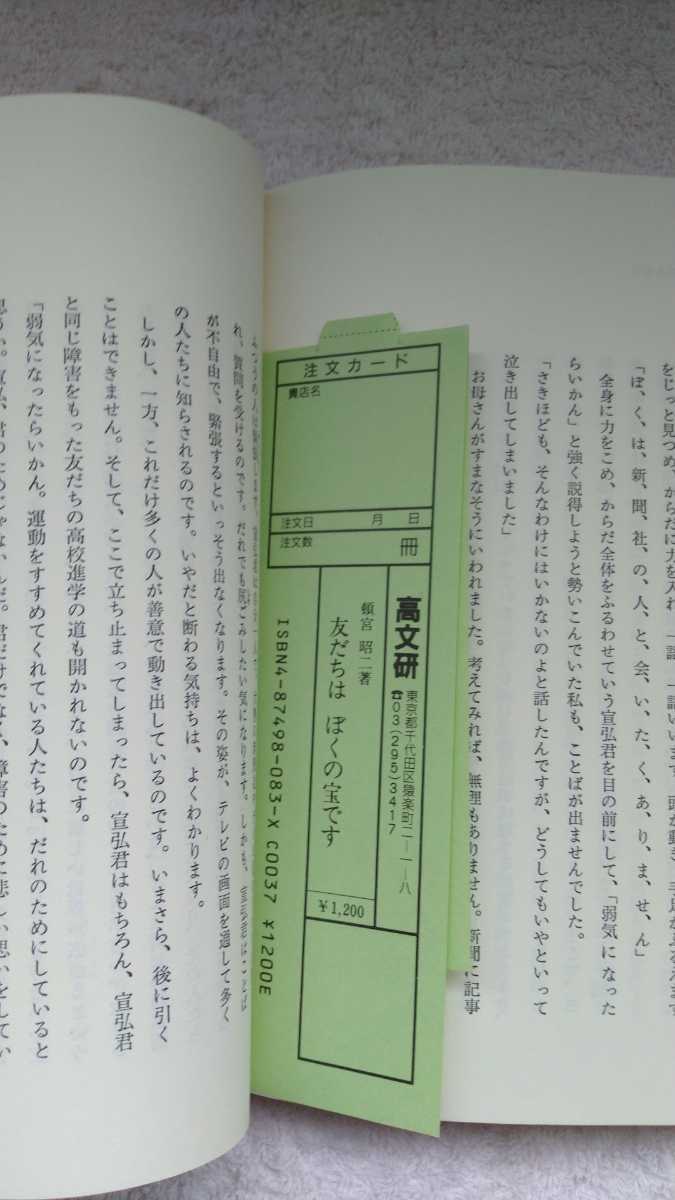 をじっと見つめ、からだに力を入れ、一語一語いいます。頭が動き、手足がふるえます
「ぼ、く、は、新、聞、社、の、人、と、会、い、た、く、あ、り、ま、せ、ん」
全身に力をこめ、からだ全体をふるわせていう宣弘君を目の前にして、「弱気になった
らいかん」と強く説得しようと勢いこんでいた私も、ことばが出ませんでした。
「さきほども、そんなわけにはいかないのよと話したんですが、どうしてもいやといって
泣き出してしまいました」
お母さんがすまなそうにいわれました。考えてみれば、無理もありません。新聞に記事
注文カード
貴店名
注文日 月 日
注文数 冊
高文研
東京都千代田区猿楽町二―一―八
☎03(295)3417
頓宮 昭二著
友だちは ぼくの宝です
¥1,200
ISBN4-87498-083-X C0037 ¥1200E
れ、質問を受けるのです。だれでも尻ごみしたい気になります。しかも、宣弘君はことば
が不自由で、緊張するといっそう出なくなります。その姿が、テレビの画面を通して多く
の人たちに知らされるのです。いやだと断わる気持ちは、よくわかります。
しかし、一方、これだけ多くの人が善意で動き出しているのです。いまさら、後に引く
ことはできません。そして、ここで立ち止まってしまったら、宣弘君はもちろん、宣弘君
と同じ障害をもった友だちの高校進学の道も開かれないのです。
「弱気になったらいかん。運動をすすめてくれている人たちは、だれのためにしていると
思うか。宣弘、君のためじゃないんだ。君だけでなく、障害のために悲しい思いをしてい